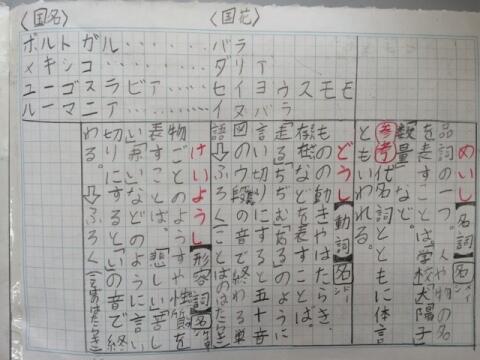 〈国名〉 〈国花〉
ポルトガル…………バラ
メキシコ……………ダリア
ユーゴスラビア……セイヨウスモモ
ルーマニア…………イヌバラ
めいし【名詞】名
品詞の一つ。人や物の名
を表すことば。「学校」「太陽」「子」
「数量」など。
参考 代名詞とともに体言
ともいわれる。
どうし【動詞】名
ものの動きやはたらき、
存在などを表すことば。
「走る」「ちぢむ」「ある」のように
言い切りにすると五十音
図のウ段の音で終わる単
語 ⇩ふろく(ことばのはたらき)
けいようし【形容詞】名
物ごとのようすや性質を
表すことば。「悲しい」「苦し
い」「赤い」などのように言い
切りにすると「い」の音で終
わる。⇩ふろく(ことばのはたらき)